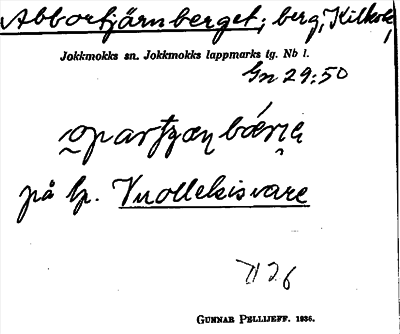 Abbortjärnberget; berg, Kilkok,
Jokkmokks sn. Jokkmokks lappmarks tg. Nb l.
Gn 29:50
på lp. Vuolleksisvare
7126
GUNNAR PELLIJEFF. 1936.